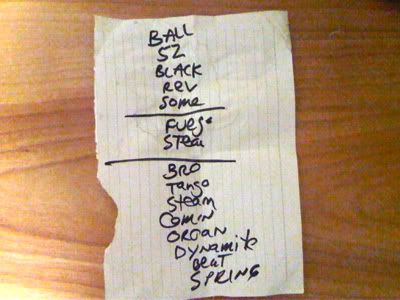 BALL
52
BLACK
REV
some
Fuego
STEAM
BRO
Tango
STEAM
Comin
ORGAN
DYNAMITE
BEAT
SPRING